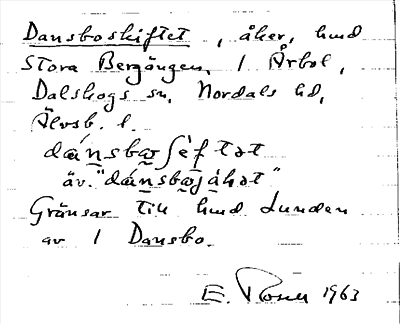 Dansboskiftet, åker, hmd
Stora Bergängen, 1 Årbol,
Dalskogs sn, Nordals hd,
Älvsb. l.
dánsbωʃèftət
äv. "dánsbωjáhət"
Gränsar till hmd Lunden
av 1 Dansbo.
E. Rosell 1963